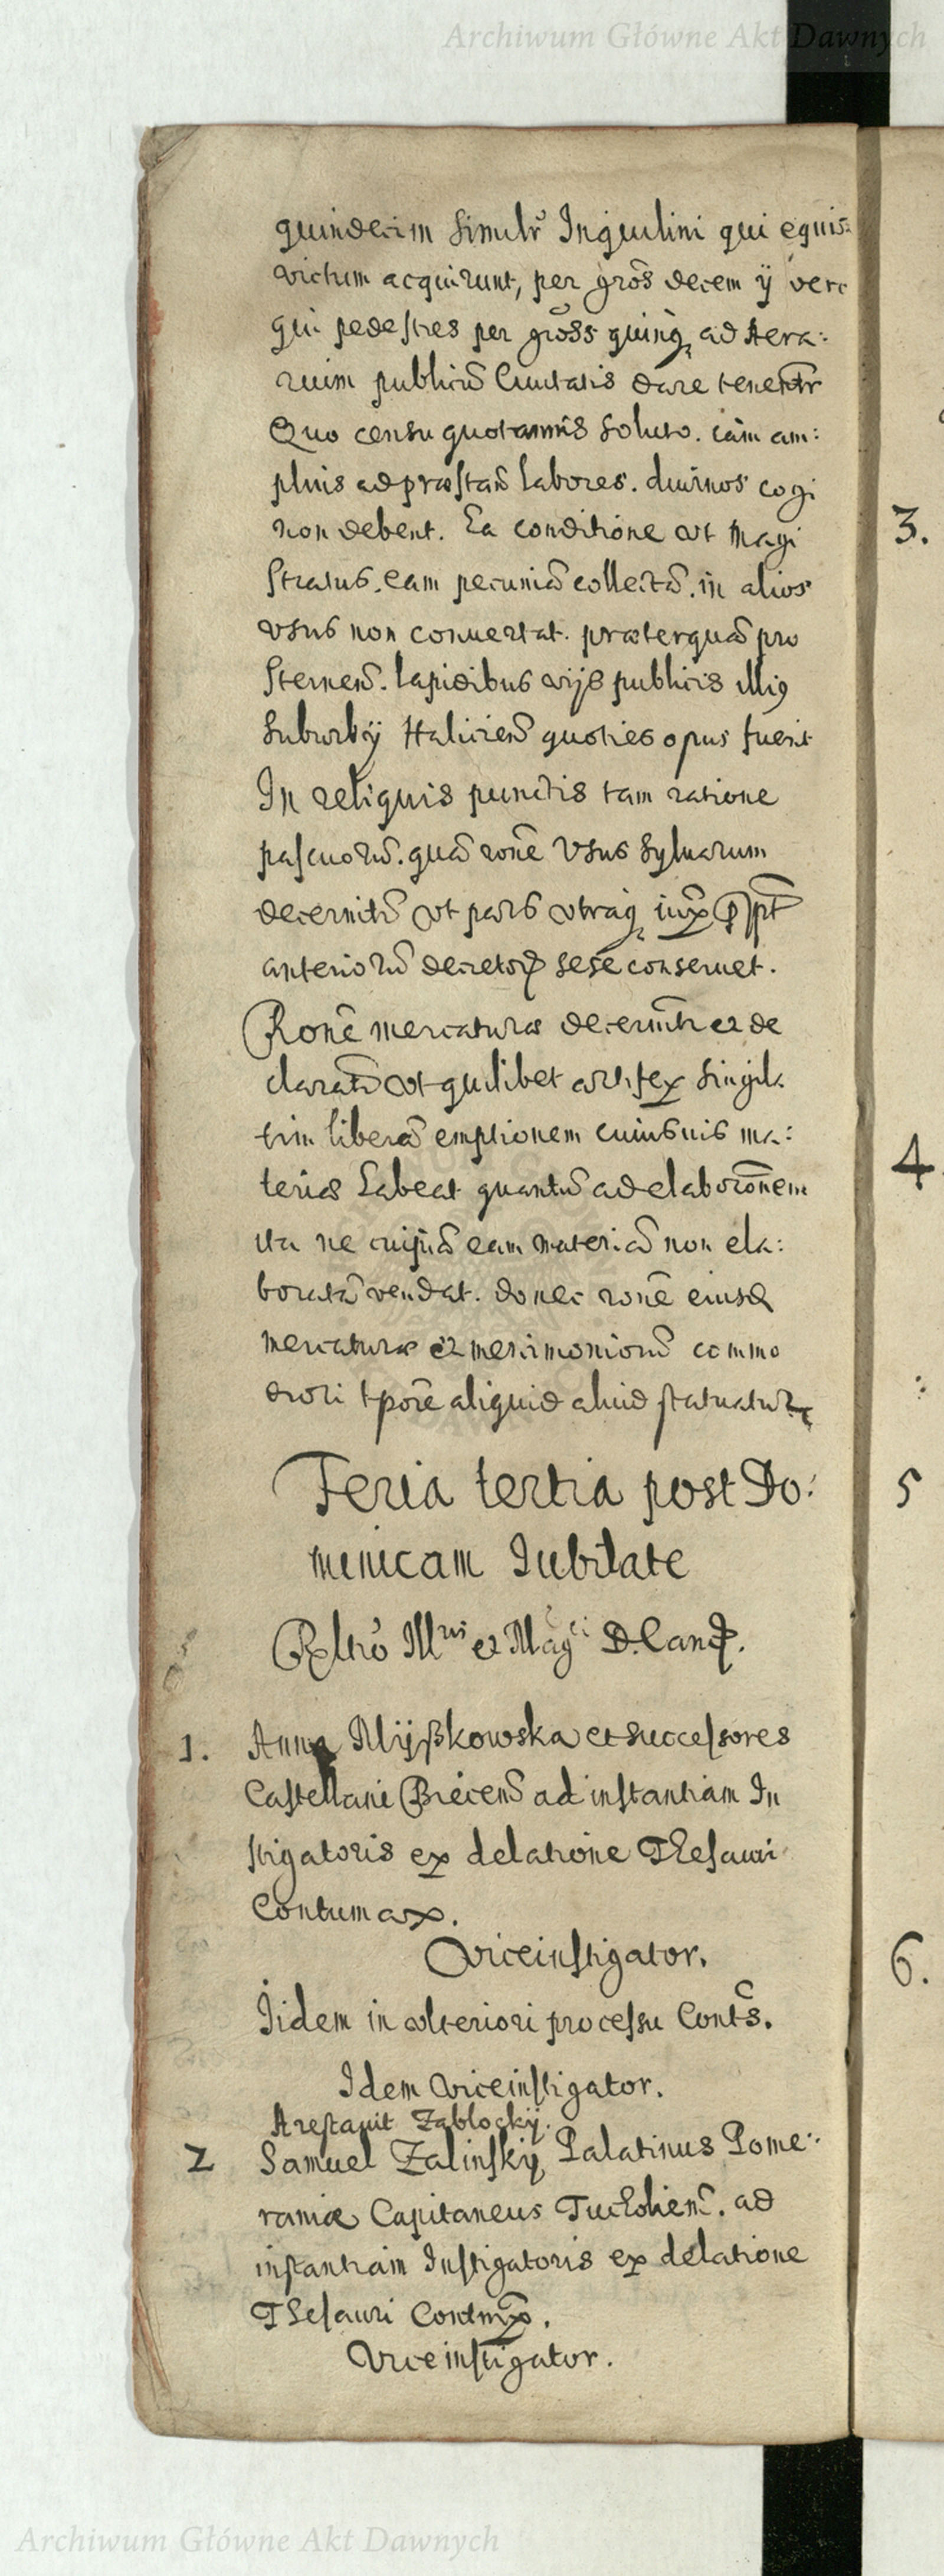 Archiwum Główne Akt Dawnych
quindecim similr Inquilini qui equis
victum acquirunt, per gros decem ÿ vero
qui pedestres per gross quinq ad Aera:
rium publicu Ciuitatis dare tenentr
Quo censu quotannis soluto. iam am:
plius ad præstan labores. diurnos cogi
non debent. Ea conditione vt Magi
stratus. eam pecunia collecta. in alios
vsus non conuertat. præterqua pro
sternen. lapidibus vijs publicis illig
suburbÿ Halicien quoties opus fuerit
In reliquis punctis tam ratione
pascuoru. qua rone Vsus syluarum
decernitr vt pars vtraq iuxa
anterioru decretor sese conseruet.
Rone mercaturæ decernitr et de
claratr vt quilibet artifex singil:
tim libera emptionem cuiusuis ma:
teriæ habeat quantu ad elaboronem
ita ne cuipia eam materia non ela:
borata vendat. donec rone eiusd
mercaturæ et merimonioru commo
diori tpore aliquid aliud statuatur
Feria tertia post Do:
minicam Iubilate
Reltio Illris et Magci D. Canc.
1. Anna Mÿszkowska et successores
Castellani Brecen ad instantiam In
stigatoris ex delatione Thesauri
Contumax.
Viceinstigator.
Iidem in vlteriori processu Conts.
Idem Viceinstigator.
Arestauit Zablockÿ.
2 Samuel Zalinskÿ Palatinus Pome:
raniæ Capitaneus Tucholien. ad
instantiam Instigatoris ex delatione
Thesauri Contmx.
Viceinstigator.
3.
4.
5
6.
Archiwum Główne Akt Dawnych